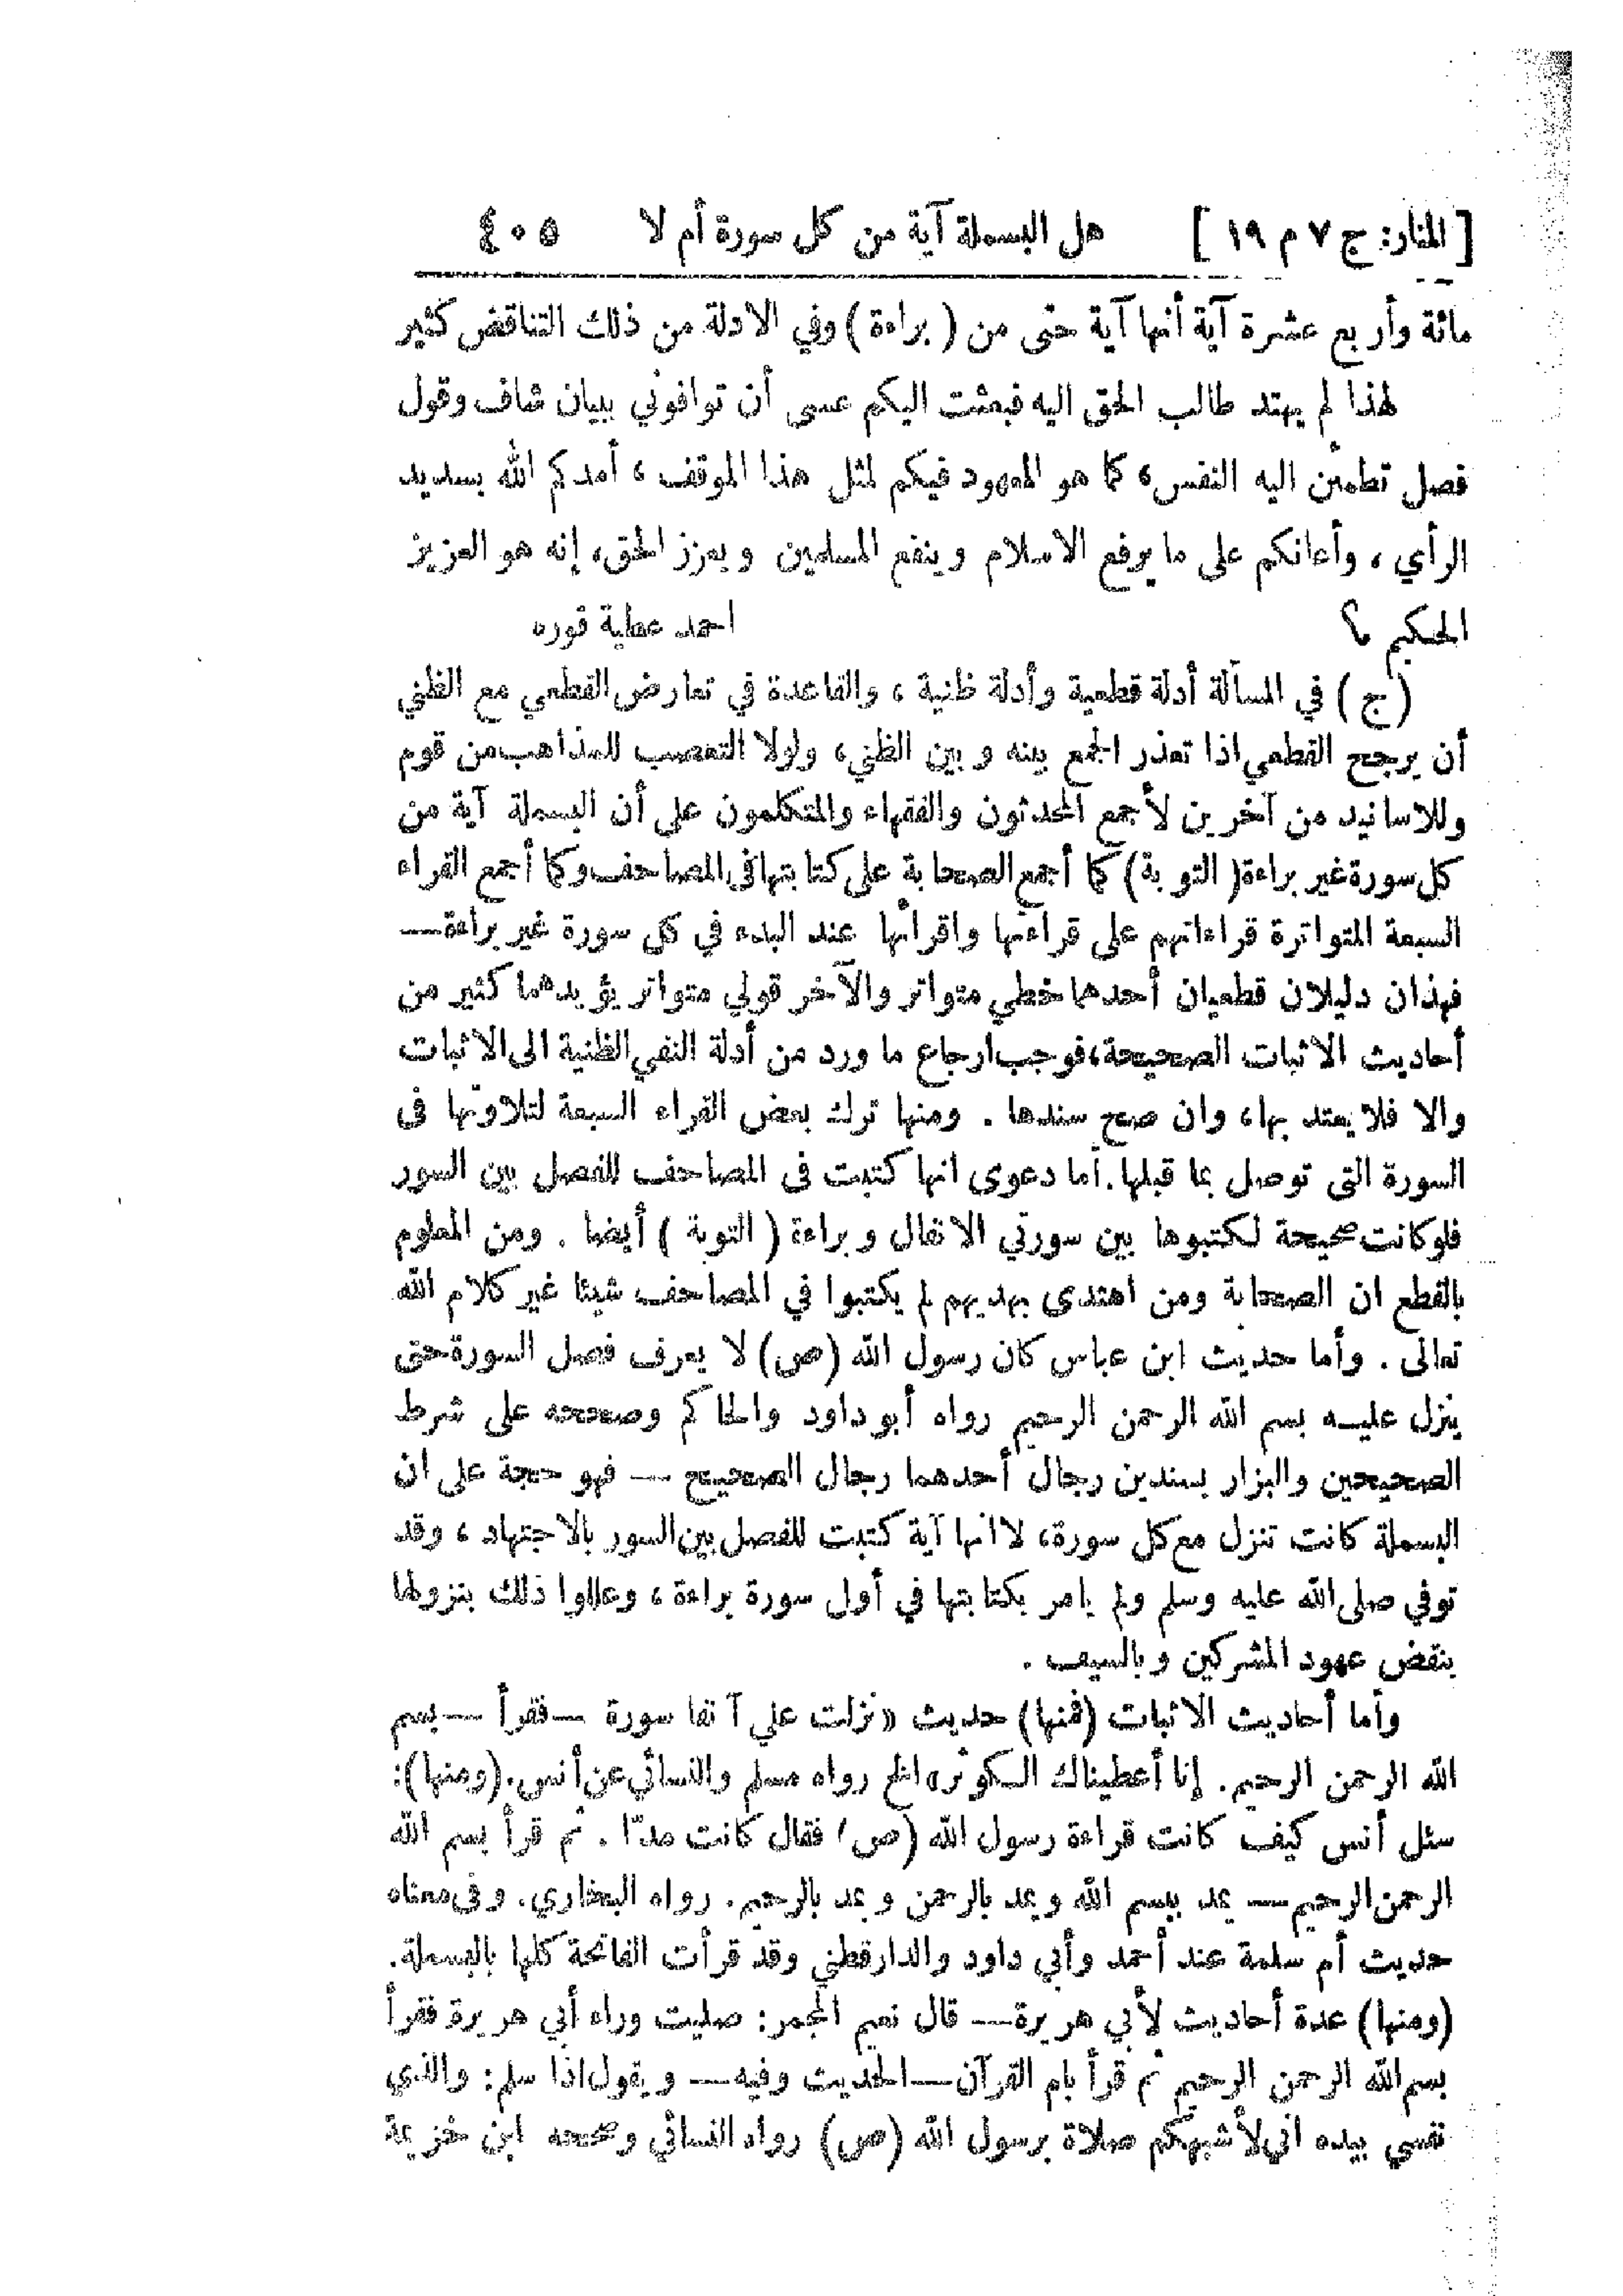 [ المنار: ج ٧ م ١٩ ] هل البسملة آية من كل سورة أم لا ٤٠٥
مائة وأربع عشرة آية أنها آية حتى من ( براءة ) وفي الادلة من ذلك التناقض كثير
لهذا لم يهتد طالب الحق اليه فبعثت اليكم عسى أن توافوني ببيان شاف وقول
فصل تطمئن اليه النفس، كما هو المعهود فيكم لمثل هذا الموقف ، أمدكم الله بسديد
الرأي ، وأعانكم على ما يرفع الاسلام وينفع المسلمين ويعزز الحق، إنه هو العزيز
الحكيم ؟ احمد عطية قوره
( ج ) في المسألة أدلة قطعية وأدلة ظنية ، والقاعدة في تعارض القطعي مع الظني
أن يرجح القطعي اذا تعذر الجمع بينه وبين الظني، ولولا التعصب للمذاهب من قوم
وللاسانيد من آخرين لأجمع المحدثون والفقهاء والمتكلمون على أن البسملة آية من
كل سورة غير براءة ( التوبة ) كما أجمع الصحابة على كتابتها في المصاحف وكما أجمع القراء
السبعة المتواترة قراءاتهم على قراءتها واقرائها عند البدء في كل سورة غير براءة —
فهذان دليلان قطعيان أحدهما خطي متواتر والآخر قولي متواتر يؤيدهما كثير من
أحاديث الاثبات الصحيحة، فوجب ارجاع ما ورد من أدلة النفي الظنية الى الاثبات
والا فلا يعتد بها، وان صح سندها . ومنها ترك بعض القراء السبعة لتلاوتها في
السورة التي توصل بما قبلها. أما دعوى انها كتبت في المصاحف للفصل بين السور
فلو كانت صحيحة لكتبوها بين سورتي الانفال وبراءة ( التوبة ) أيضا . ومن المعلوم
بالقطع ان الصحابة ومن اهتدى بهديهم لم يكتبوا في المصاحف شيئا غير كلام الله
تعالى . وأما حديث ابن عباس كان رسول الله (ص) لا يعرف فصل السورة حتى
ينزل عليه بسم الله الرحمن الرحيم رواه أبو داود والحاكم وصححه على شرط
الصحيحين والبزار بسندين رجال أحدهما رجال الصحيح — فهو حجة على ان
البسملة كانت تنزل مع كل سورة، لا انها آية كتبت للفصل بين السور بالاجتهاد ، وقد
توفي صلى الله عليه وسلم ولم يامر بكتابتها في أول سورة براءة ، وعللوا ذلك بنزولها
بنقض عهود المشركين وبالسيف .
وأما أحاديث الاثبات (فمنها) حديث « نزلت علي آنفا سورة — فقرأ — بسم
الله الرحمن الرحيم. إنا أعطيناك الكوثر» الخ رواه مسلم والنسائي عن أنس. (ومنها):
سئل أنس كيف كانت قراءة رسول الله (ص) فقال كانت مدّا . ثم قرأ بسم الله
الرحمن الرحيم — يمد ببسم الله ويمد بالرحمن ويمد بالرحيم. رواه البخاري. وفي معناه
حديث أم سلمة عند أحمد وأبي داود والدارقطني وقد قرأت الفاتحة كلها بالبسملة.
(ومنها) عدة أحاديث لأبي هريرة — قال نعيم المجمر: صليت وراء أبي هريرة فقرأ
بسم الله الرحمن الرحيم ثم قرأ بام القرآن — الحديث وفيه — ويقول اذا سلم: والذي
نفسي بيده اني لأشبهكم صلاة برسول الله (ص) رواه النسائي وصححه ابن خزيمة